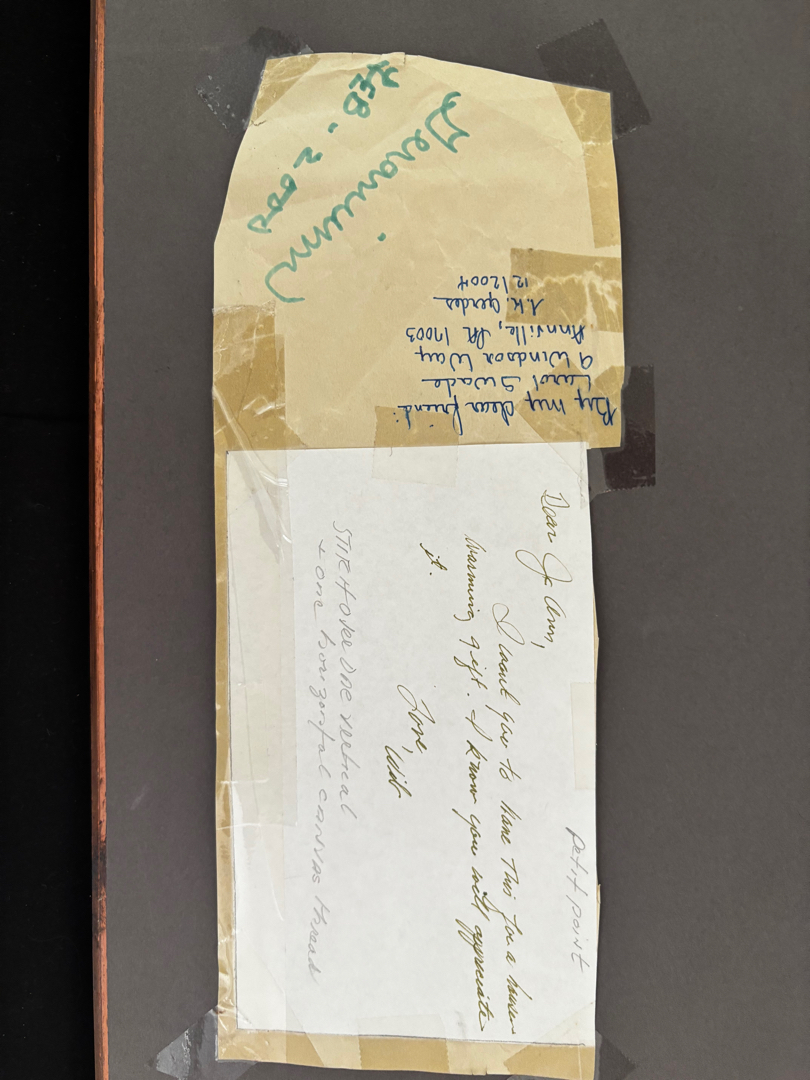 Geranium
FEB. 2000
By my dear friend
Carol Swade
9 Windsor Way
Annville, PA 17003
J.K. Gerdes
12/2004
petit point
Dear Jo Ann,
I want you to have this for a house
warming gift. I know you will appreciate
it.
Love,
Wib
STITCH OVER ONE vertical
+ one horizontal canvas thread